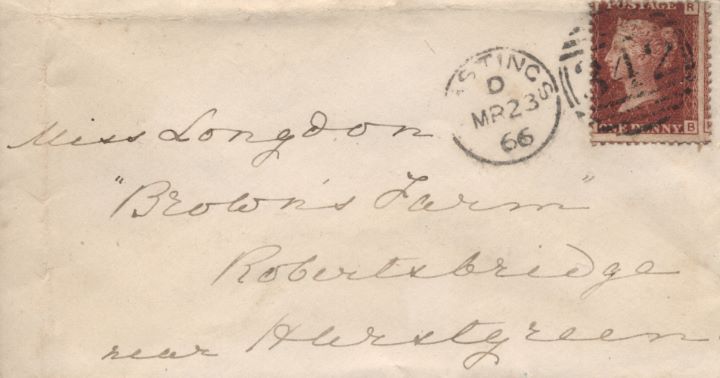 POSTAGE
R
342
B
PENNY
STINGS
D
MR23
66
Miss Longdon
"Brown's Farm"
Robertsbridge
near Hurstgreen